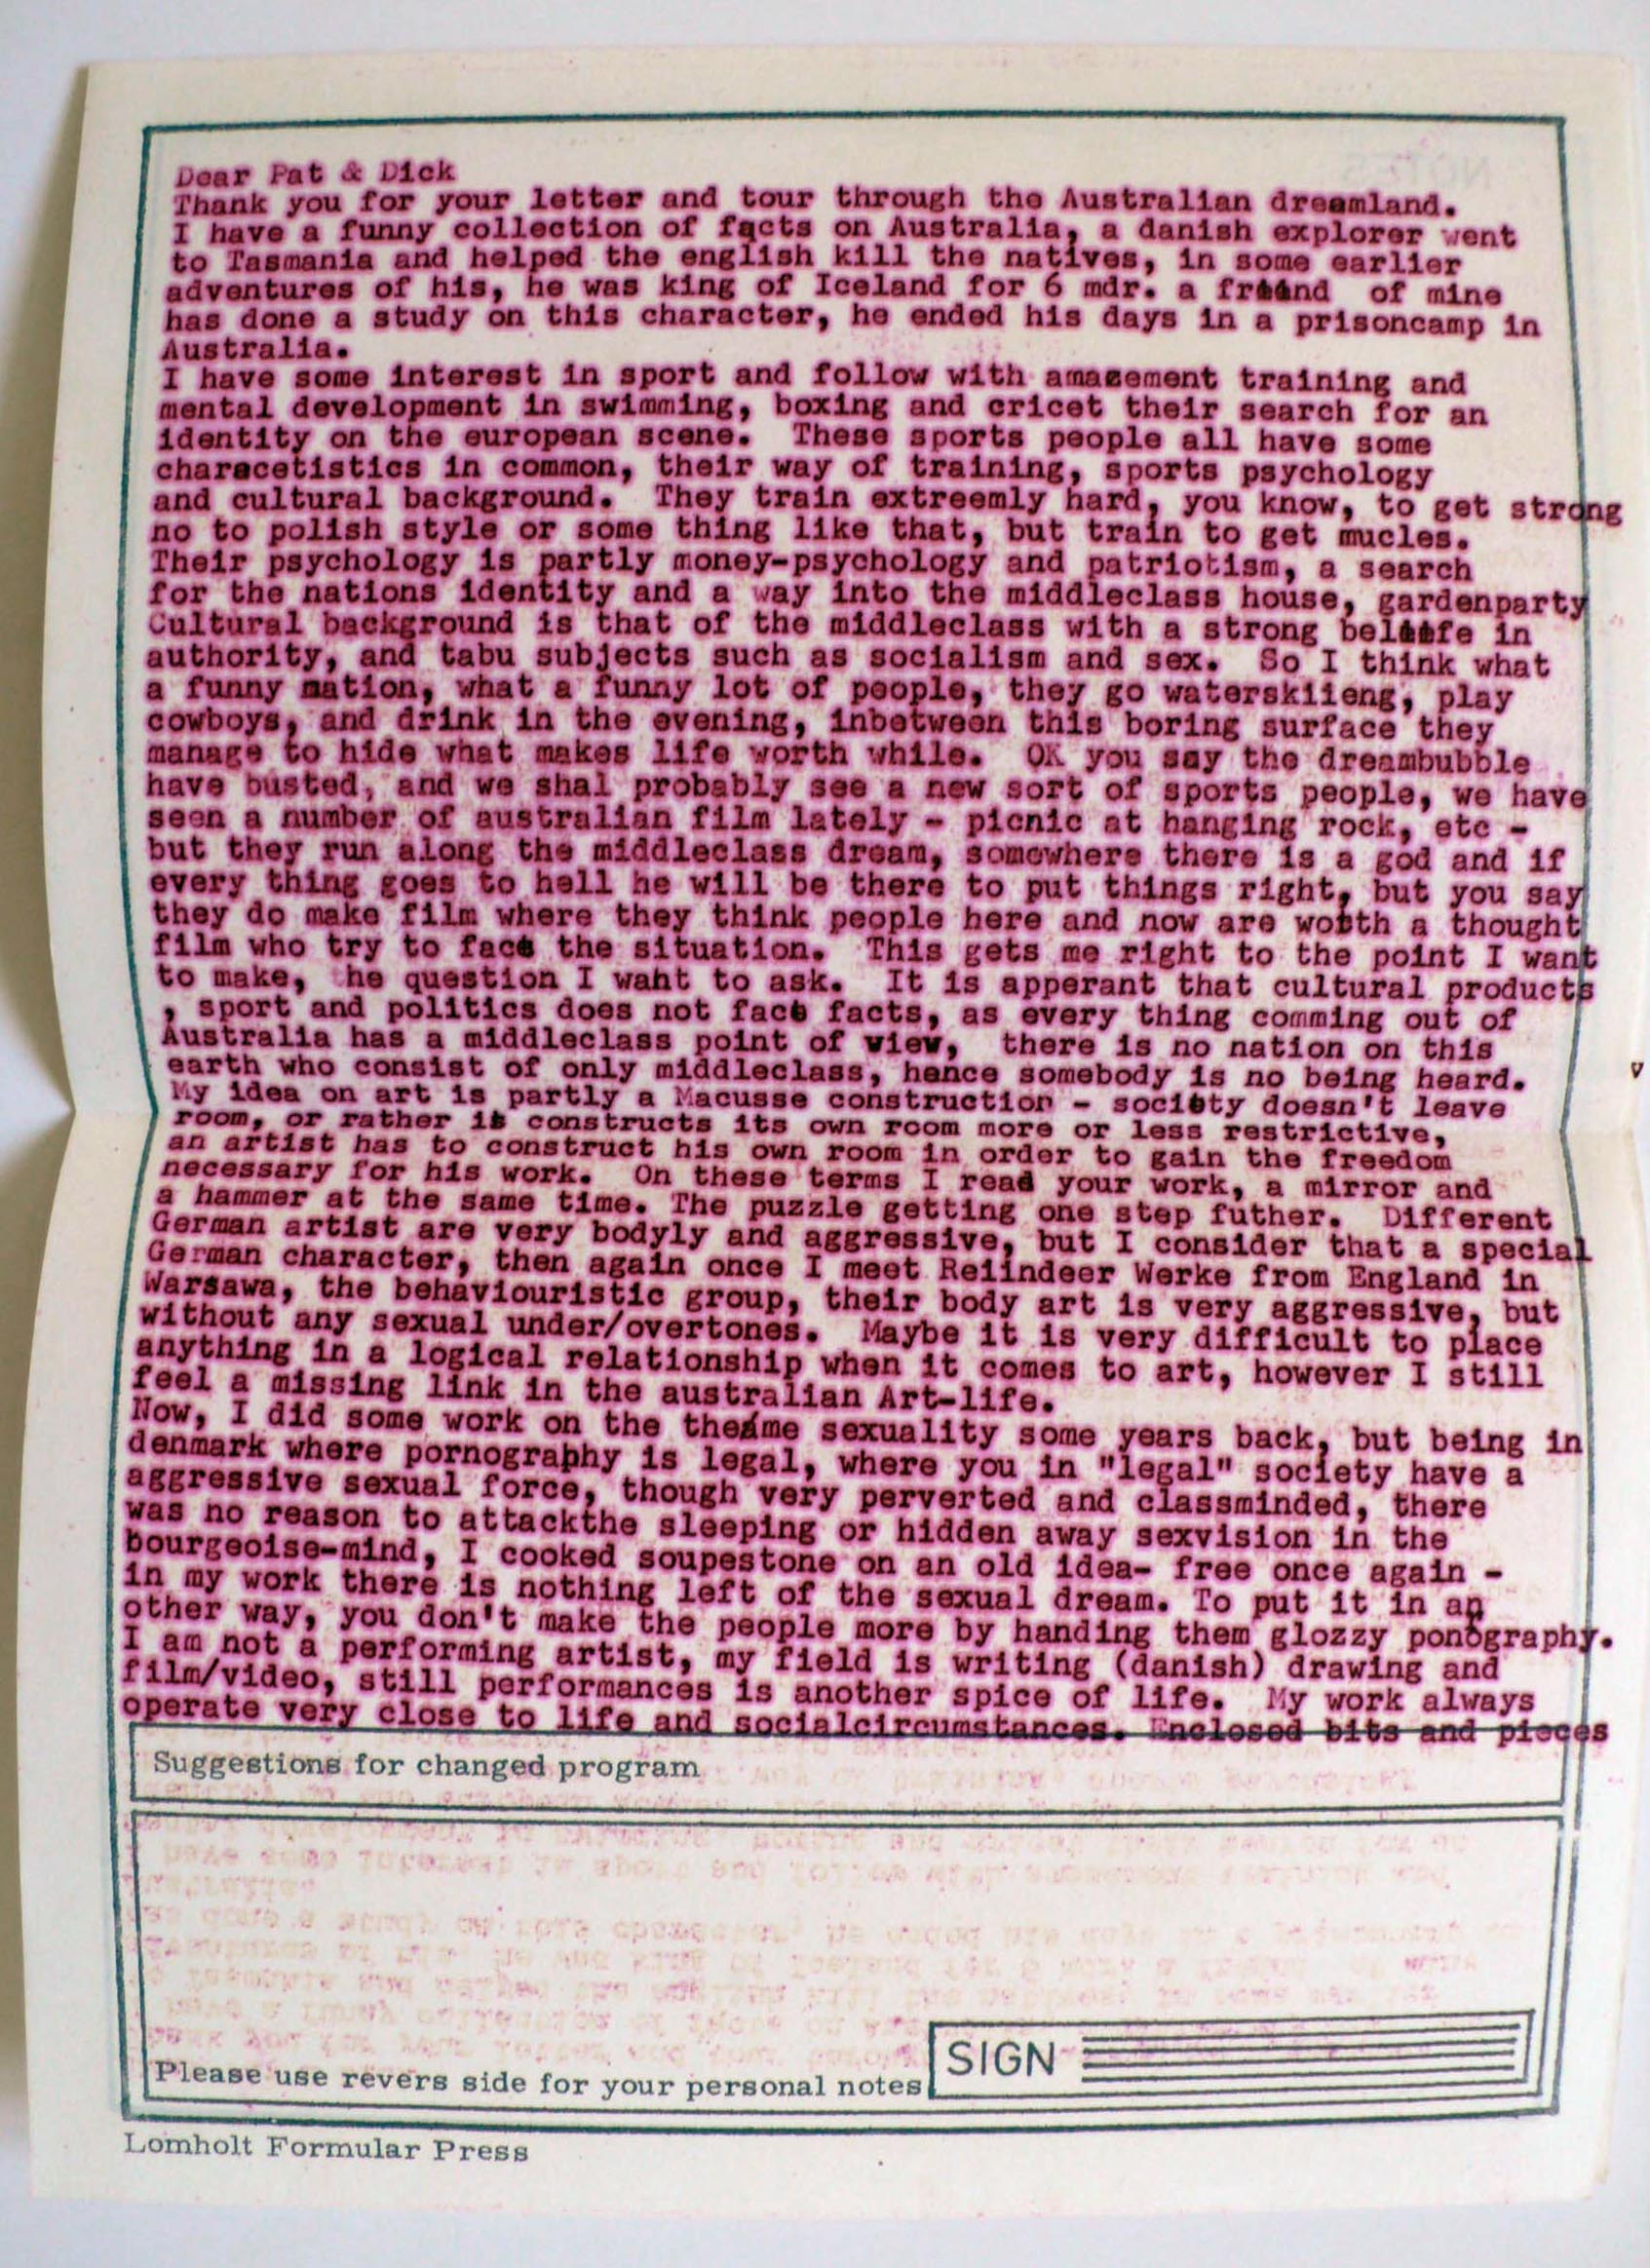 Dear Pat & Dick
Thank you for your letter and tour through the Australian dreamland.
I have a funny collection of facts on Australia, a danish explorer went
to Tasmania and helped the english kill the natives, in some earlier
adventures of his, he was king of Iceland for 6 mdr. a friend of mine
has done a study on this character, he ended his days in a prisoncamp in
Australia.
I have some interest in sport and follow with amasement training and
mental development in swimming, boxing and cricet their search for an
identity on the european scene. These sports people all have some
characetistics in common, their way of training, sports psychology
and cultural background. They train extreemly hard, you know, to get strong
no to polish style or some thing like that, but train to get mucles.
Their psychology is partly money-psychology and patriotism, a search
for the nations identity and a way into the middleclass house, gardenparty
Cultural background is that of the middleclass with a strong in
authority, and tabu subjects such as socialism and sex. So I think what
a funny nation, what a funny lot of people, they go waterskiieng, play
cowboys, and drink in the evening, inbetween this boring surface they
manage to hide what makes life worth while. OK you say the dreambubble
have busted, and we shal probably see a new sort of sports people, we have
seen a number of australian film lately - picnic at hanging rock, etc -
but they run along the middleclass dream, somewhere there is a god and if
every thing goes to hell he will be there to put things right, but you say
they do make film where they think people here and now are worth a thought
film who try to face the situation. This gets me right to the point I want
to make, he question I waht to ask. It is apperant that cultural products
, sport and politics does not face facts, as every thing comming out of
Australia has a middleclass point of view, there is no nation on this
earth who consist of only middleclass, hence somebody is no being heard.
v
My idea on art is partly a Macusse construction - society doesn't leave
room, or rather it constructs its own room more or less restrictive,
an artist has to construct his own room in order to gain the freedom
necessary for his work. On these terms I read your work, a mirror and
a hammer at the same time. The puzzle getting one step futher. Different
German artist are very bodyly and aggressive, but I consider that a special
German character, then again once I meet Reiindeer Werke from England in
Warsawa, the behaviouristic group, their body art is very aggressive, but
without any sexual under/overtones. Maybe it is very difficult to place
anything in a logical relationship when it comes to art, however I still
feel a missing link in the australian Art-life.
Now, I did some work on the theme sexuality some years back, but being in
denmark where pornography is legal, where you in "legal" society have a
aggressive sexual force, though very perverted and classminded, there
was no reason to attackthe sleeping or hidden away sexvision in the
bourgeoise-mind, I cooked soupestone on an old idea- free once again -
in my work there is nothing left of the sexual dream. To put it in an
other way, you don't make the people more by handing them glozzy ponography.
I am not a performing artist, my field is writing (danish) drawing and
film/video, still performances is another spice of life. My work always
operate very close to life and socialcircumstances. Enclosed bits and pieces
Suggestions for changed program
SIGN
Please use revers side for your personal notes
Lomholt Formular Press